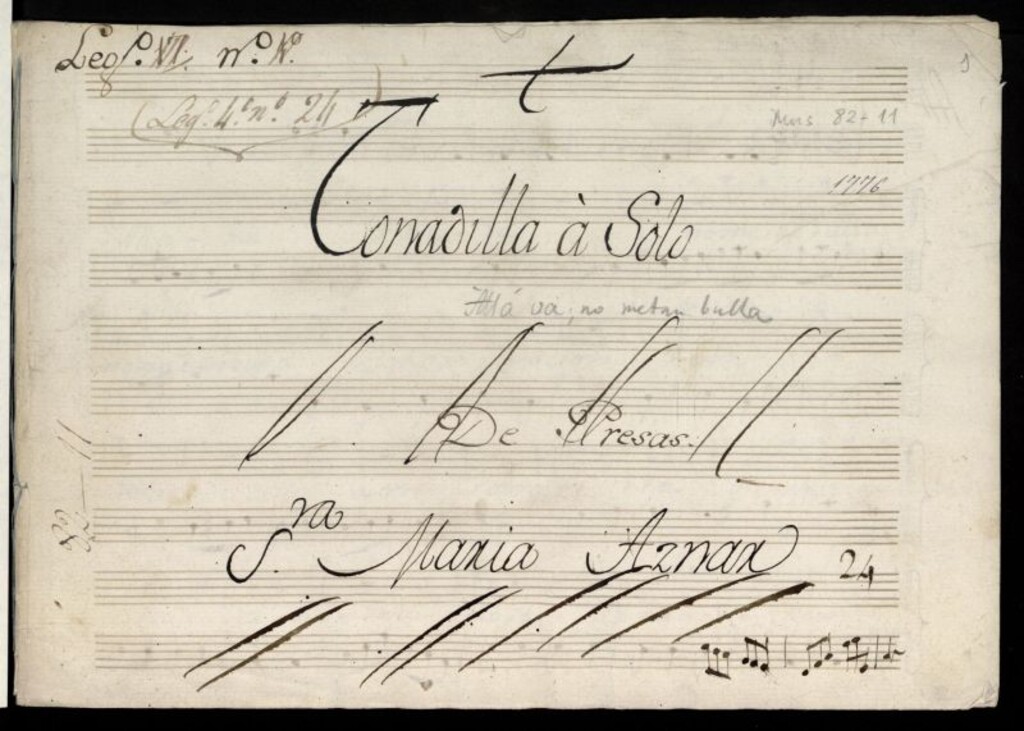 Legº. VI. nº.
1
(Leg.º 4.º n.º 24)
Mus 82-11
1776
Tonadilla à Solo
Allá vá, no metan bulla
De Presas.
S.ra Maria Aznar
24